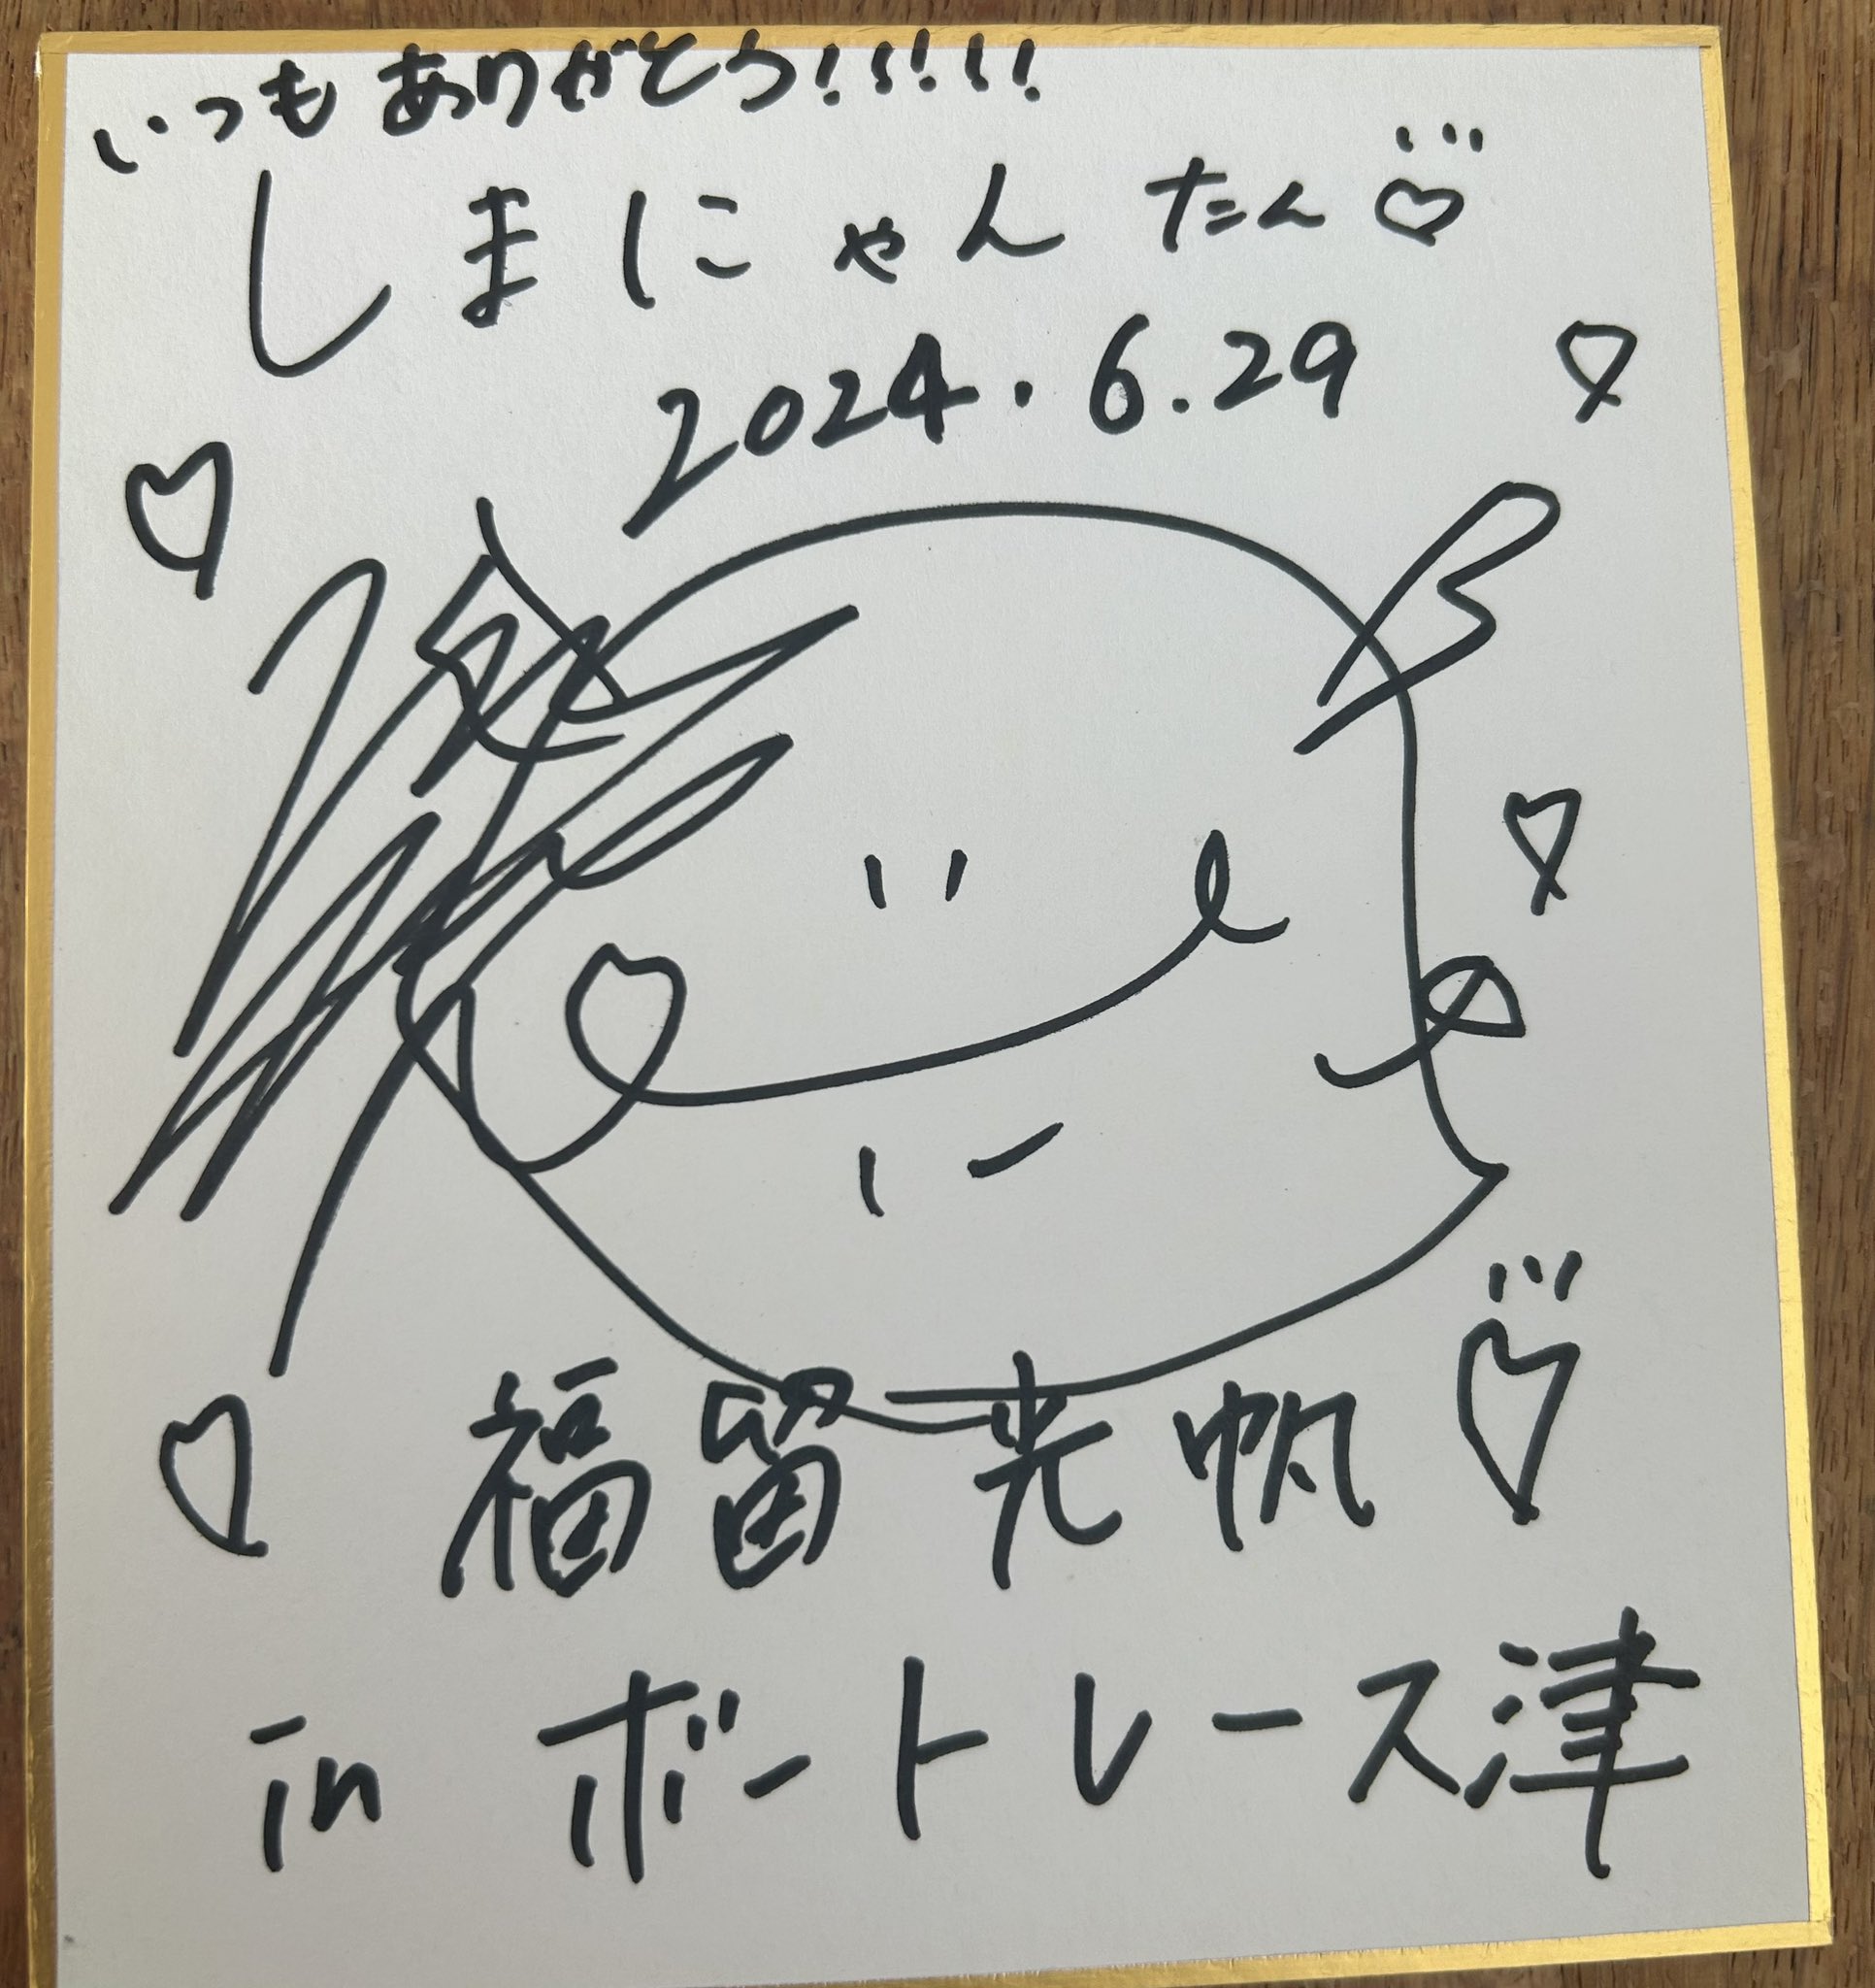 いつもありがとう!!!!!
しまにゃんたん♡
2024.6.29
福留光帆
in ボートレース津